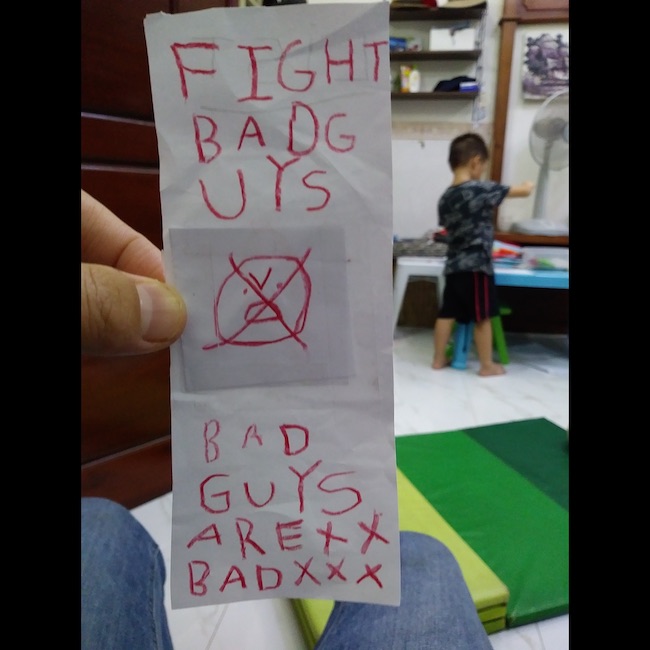 FIGHT
BADG
UYS
BAD
GUYS
ARExx
BADxxx